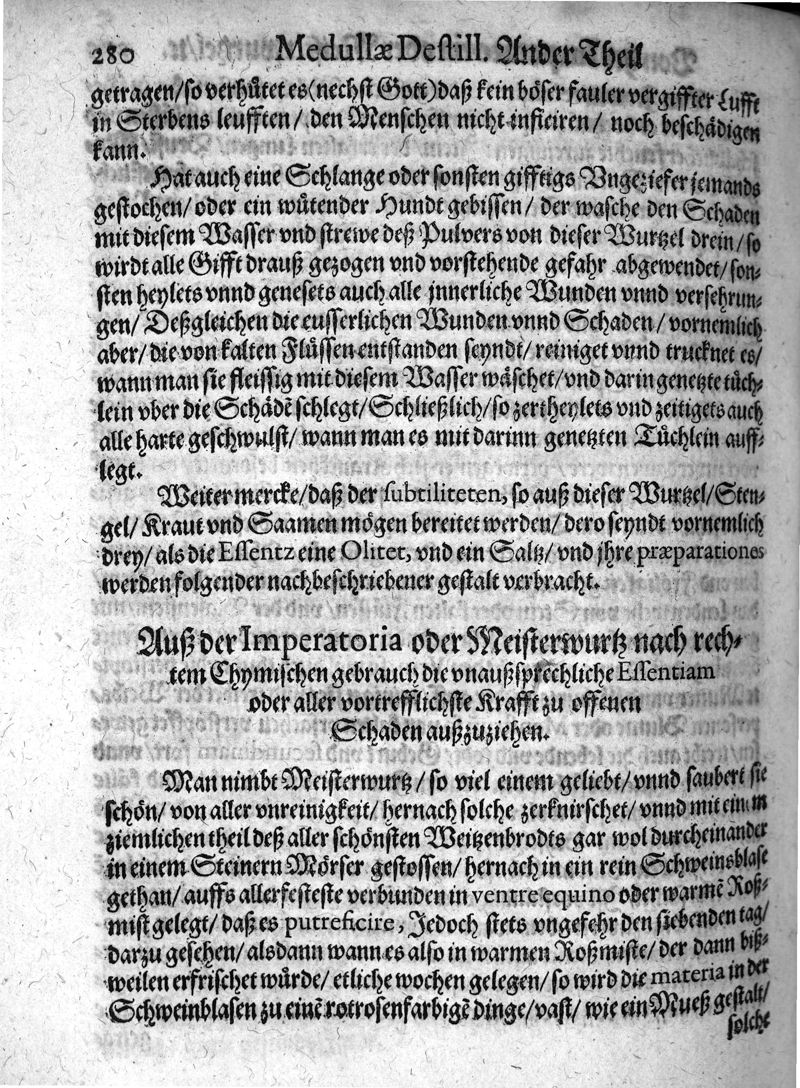 280 Medullæ Destill. Ander Theil
getragen/so verhůtet es(nechst Gott)daß kein böser fauler vergiffter Lufft
in Sterbens leufften/ den Menschen nicht inficiren/ noch beschädigen
kann.
Hat auch eine Schlange oder sonsten gifftigs Vngeziefer jemands
gestochen/ oder ein wůtender Hundt gebissen/ der wasche den Schaden
mit diesem Wasser vnd strewe deß Pulvers von dieser Wurtzel drein/ so
wirdt alle Gifft drauß gezogen vnd vorstehende gefahr abgewendet/ son-
sten heylets vnnd genesets auch alle jnnerliche Wunden vnnd versehrun-
gen/ Deßgleichen die eusserlichen Wunden vnnd Schaden/ vornemlich
aber/ die von kalten Flüssen entstanden seyndt/ reiniget vnnd trucknet es/
wann man sie fleissig mit diesem Wasser wäschet/vnd darin genetzte tüch-
lein vber die Schädẽ schlegt/Schließlich/so zertheylets vnd zeitigets auch
alle harte geschwulst/ wann man es mit darinn genetzten Tüchlein auff-
legt.
Weiter mercke/daß der subtiliteten, so auß dieser Wurtzel/Sten-
gel/ Kraut vnd Saamen mögen bereitet werden/ dero seyndt vornemlich
drey/ als die Essentz eine Olitet, vnd ein Saltz/ vnd jhre præparationes
werden folgender nachbeschriebener gestalt verbracht.
Auß der Imperatoria oder Meisterwurtz nach rech-
tem Chymischen gebrauch die vnaußsprechliche Essentiam
oder aller vortrefflichste Krafft zu offenen
Schaden außzuziehen.
Man nimbt Meisterwurtz/ so viel einem geliebt/ vnnd saubert sie
schön/ von aller vnreinigkeit/ hernach solche zerknirschet/ vnnd mit einem
ziemlichen theil deß aller schönsten Weitzenbrodts gar wol durcheinander
in einem Steinern Mörser gestossen/ hernach in ein rein Schweinsblase
gethan/ auffs allerfesteste verbunden in ventre equino oder warmẽ Roß-
mist gelegt/ daß es putreficire, Jedoch stets vngefehr den siebenden tag/
darzu gesehen/ alsdann wann es also in warmen Roßmiste/ der dann biß-
weilen erfrischet würde/ etliche wochen gelegen/ so wird die materia in der
Schweinblasen zu einẽ rotrosenfarbigẽ dinge/vast/ wie ein Mueß gestalt/
solche